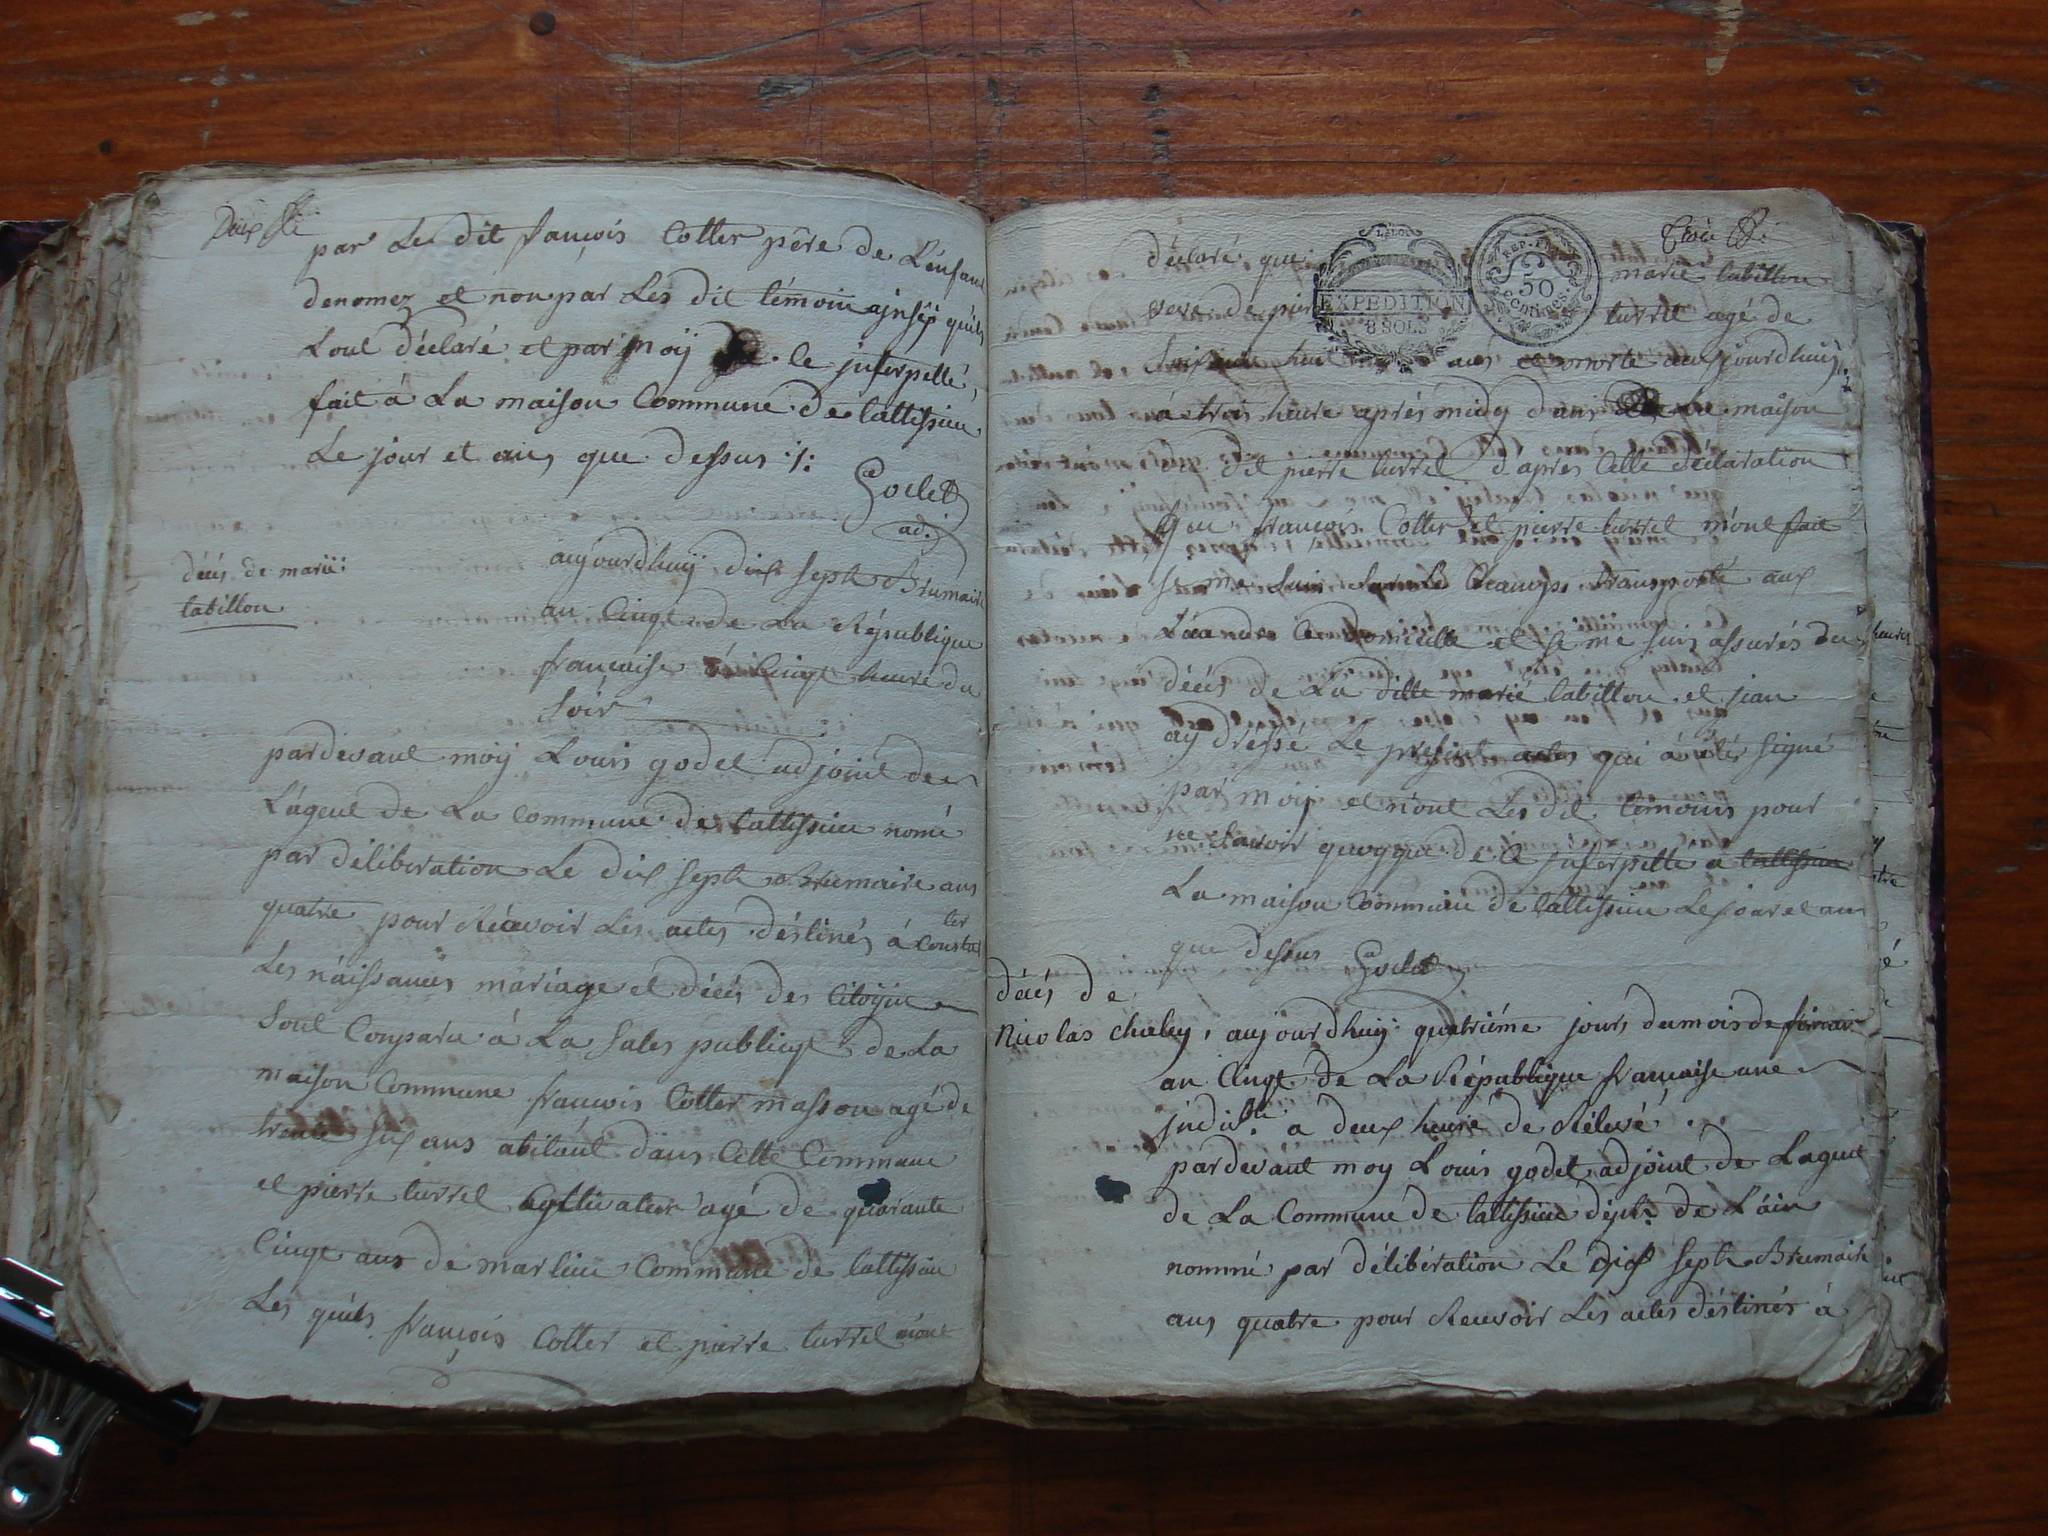 par Le dit françois Cotter père de L'enfant
denomez et non par Les dit témoin ajnsÿ quils
Lont déclaré et par moÿ de le jnterpellé,
fait à La maison Commune de Cattissieu
Le jour et ans que dessus ./.
Godet
adj.
décés de marie
tabillon
aujourdhuÿ dix sept Brumaire
an Cinqe de La République
française à Cinqt heure du
soir
pardevant moÿ Louis godet adjoint de
L'agent de La commune de Cattissieu nomé
par délibération Le dix sept Brumaire ans
quatre pour Récevoir Les actes déstinés à Consta
ter
Les náissances mariage et décés des Citoÿen
sont Conparu à La sales publiqe de La
maison Commune françois Cotter masson agé de
trente six ans abitant dans Cette Commune
et pierre turrel Cyltivateur agé de quarante
Cinqt ans de marlieu Commune de Cattissieu
Les quels françois Cotter et pierre turrel mont
déclaré que marie tabillon
veve de pier turrel agé de
soixante huit ans et morte aujourdhuÿ
à trois heure aprés midy dans La maison
dit pierre turrel d'après Cette déclaration
que françois Cotter et pierre turrel m'ont fait
je me suis sur Le Chanps transporté aux
Lieu de Ce domicille et je me suis assurés du
décés de La ditte marié tabillon et jean
aÿ dréssé Le présent actes qui à étés signé
par moÿ et n'ont Les dit témoins pour
ne savoir quoyque de Ce jnterpelle a Cattissieu
La maison Commune de Cattissieu Le jour et ans
que dessus Godet
LA LOI
EXPEDITION
8 SOLS
REP. FRA.
50
centimes.
décés de
Nicolas chaley, aujourdhuÿ quatriéme jours du mois de frimaire
an Cinqt de La République française une
jndisible à deux heure de Rélevé
pardevant moy Louis godet adjoint de Lagent
de La Commune de Cattissieu dépt. de L'ain
nommé par délibération Le dix sept Brumaire
ans quatre pour Recevoir Les actes déstinés à